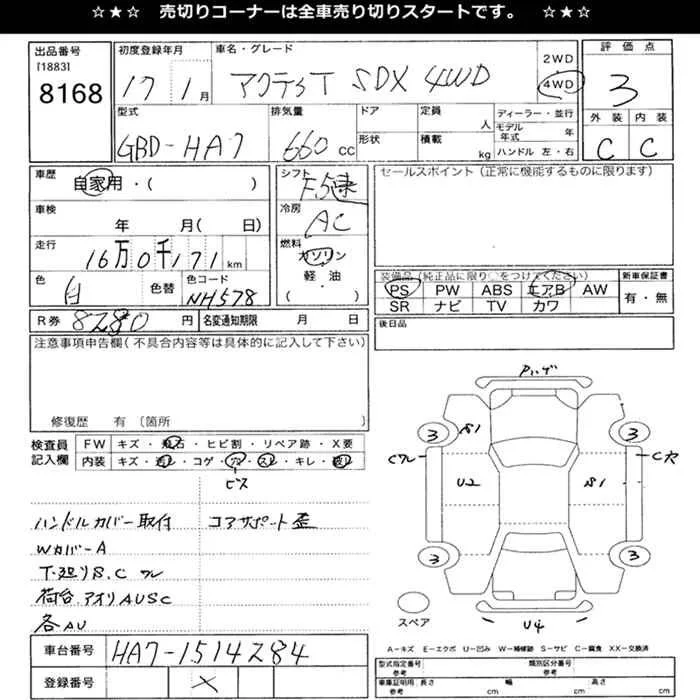 ☆★☆ 売切りコーナーは全車売り切りスタートです。 ☆★☆
出品番号
[1883]
8168
初度登録年月
17 1月
車名・グレード
アクティT SDX 4WD
2WD
4WD
評価点
3
外装 内装
C C
型式
GBD-HA7
排気量
660 cc
ドア
形状
定員
人
積載
kg
ディーラー・並行
モデル年式 年
ハンドル 左・右
車歴
自家用・( )
車検
年 月( 日)
走行
16万0千171 km
色
白
色替
色コード
NH578
シフト
F5速
冷房
AC
燃料
ガソリン
軽・油
・( )
セールスポイント(正常に機能するものに限ります)
装備品(純正品に限り○をつけてください)
PS PW ABS エアB AW
SR ナビ TV カワ
新車保証書
有・無
R券 8280 円
名変通知期限 月 日
後日品
注意事項申告欄(不具合内容等は具体的に記入して下さい)
修復歴 有(箇所
検査員
記入欄
FW キズ・飛石・ヒビ割・リペア跡・X要
内装 キズ・汚レ・コゲ・穴・スレ・キレ・破レ
ビス
ハンドルカバー取付 コアサポート歪
WカバーA
下廻りS.C ワレ
荷台.アオリAUSC
各AU
車台番号 HA7-1514284
登録番号 ×
3
S1
3
Cワレ
C穴
U2
S1
3
3
U4
スペア
A-キズ E-エクボ U-凹み W-補修跡 S-サビ C-腐食 XX-交換済
型式指定番号
参考
類別区分番号
車庫証明用
参考
長さ cm 幅 cm 高さ cm